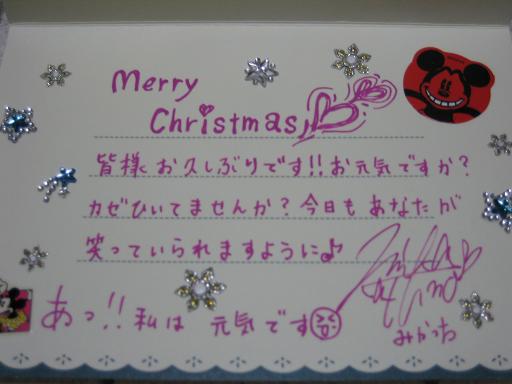 Merry
Christmas
皆様 お久しぶりです!!お元気ですか?
カゼひいてませんか?今日もあなたが
笑っていられますように♪
あっ!!私は 元気です
みかっち